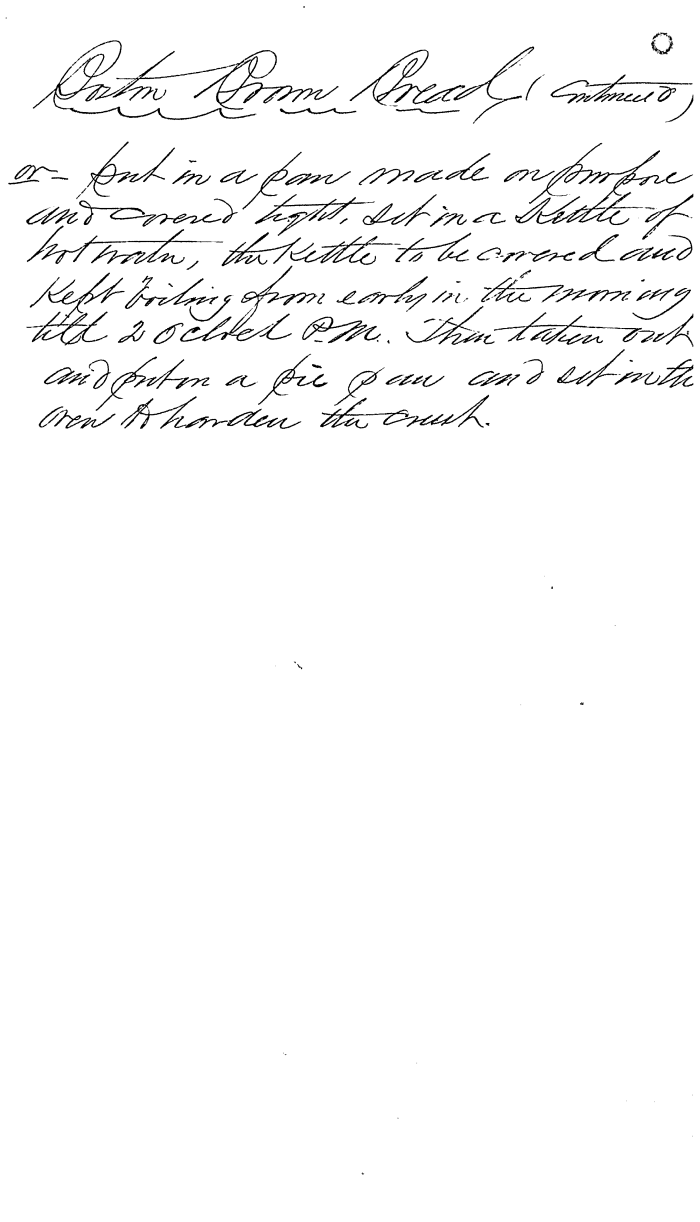 Boston Brown Bread (Continued)
or - put in a pan made on purpose
and covered tight, set in a Kettle of
hot water, the Kettle to be covered and
Kept boiling from early in the morning
till 2 oclock P.M. Then taken out
and put in a pie pan and set in the
oven to harden the crust.